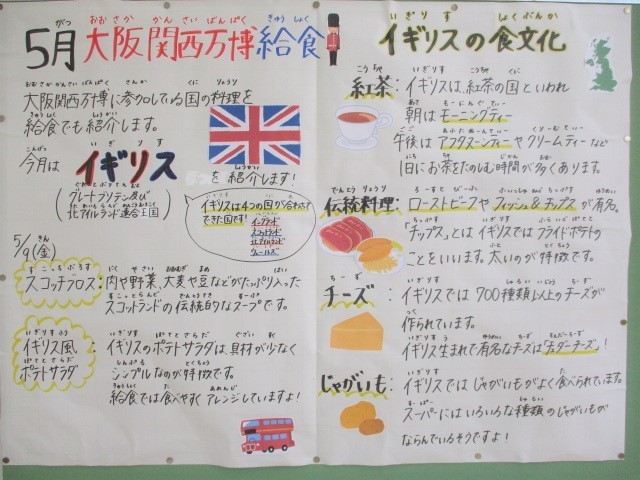 5月 大阪関西万博給食
大阪関西万博に参加している国の料理を
給食でも紹介します。
今月は イギリス
(グレートブリテン及び
北アイルランド連合王国)
を紹介します!
イギリスは4つの国が合わさって
できた国です!
イングランド
スコットランド
北アイルランド
ウェールズ
5/9(金)
スコッチブロス:肉や野菜、大麦や豆などがたっぷり入った
スコットランドの伝統的なスープです。
イギリス風
ポテトサラダ
:イギリスのポテトサラダは、具材が少なく
シンプルなのが特徴です。
給食では食べやすくアレンジしていますよ!
イギリスの食文化
紅茶:イギリスは、紅茶の国といわれ
朝はモーニングティー
午後はアフタヌーンティーやクリームティーなど
1日にお茶をたのしむ時間が多くあります。
伝統料理:ローストビーフやフィッシュ&チップスが有名。
「チップス」とはイギリスではフライドポテトの
ことをいいます。太いのが特徴です。
チーズ:イギリスでは700種類以上のチーズが
作られています。
イギリス生まれで有名なチーズは「チェダーチーズ」!
じゃがいも:イギリスではじゃがいもがよく食べられています。
スーパーにはいろいろな種類のじゃがいもが
ならんでいるそうですよ!